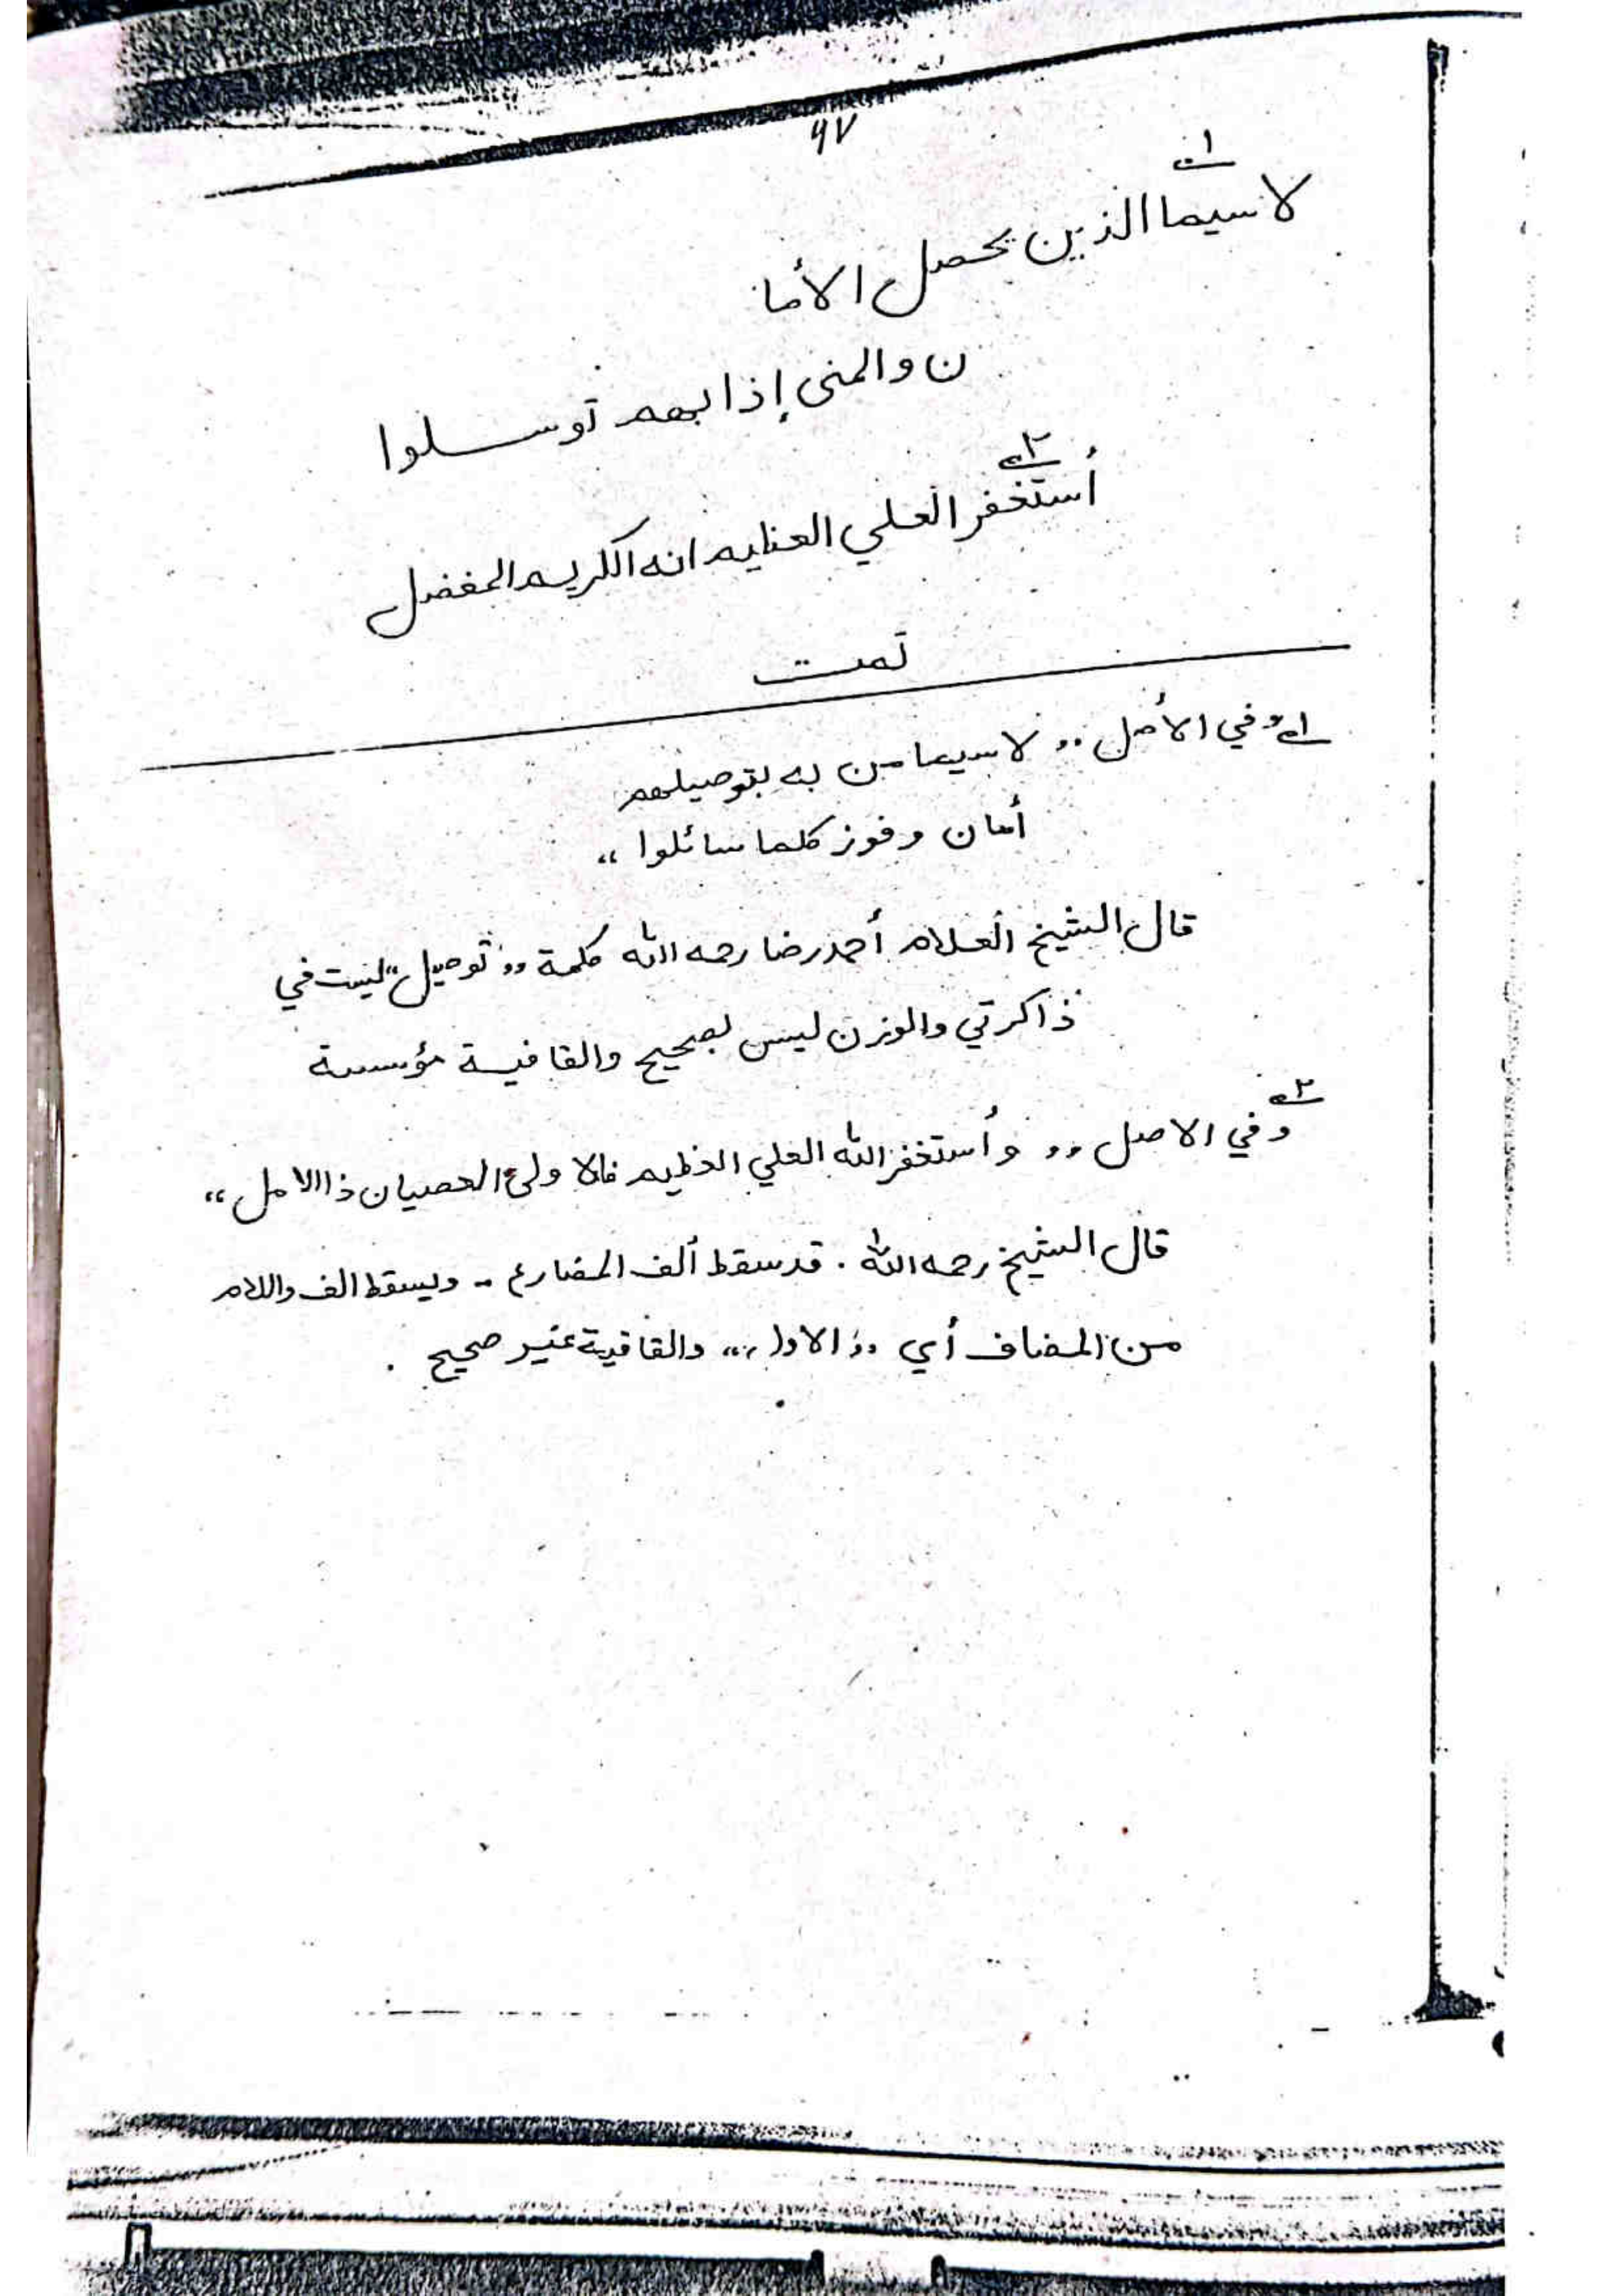 ٩٧
١
لا سيما الذين يحصل الأما
ن والمنى إذا بهم توسلوا
٢
أستغفر العلي العظيم انه الكريم المفضل
تمت
١ وفي الأصل ,, لا سيما من به بتوصيلهم
أمان وفوز كلما سائلوا ,,
قال الشيخ العلام أحمد رضا رحمه الله كلمة ,, توصيل ,, ليست في
ذاكرتي والوزن ليس بصحيح والقافية مؤسسة
٢
وفي الاصل ,, وأستغفر الله العلي العظيم فالا ولى العصيان ذا الامل ,,
قال الشيخ رحمه الله . قد سقط ألف المضارع - ويسقط الف واللام
من المضاف أي ,, الاول ,, والقافية غير صحيح .